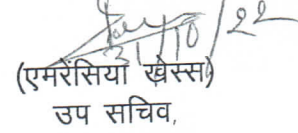 31/10/22
(एमरेंसिया खेस्स)
उप सचिव,